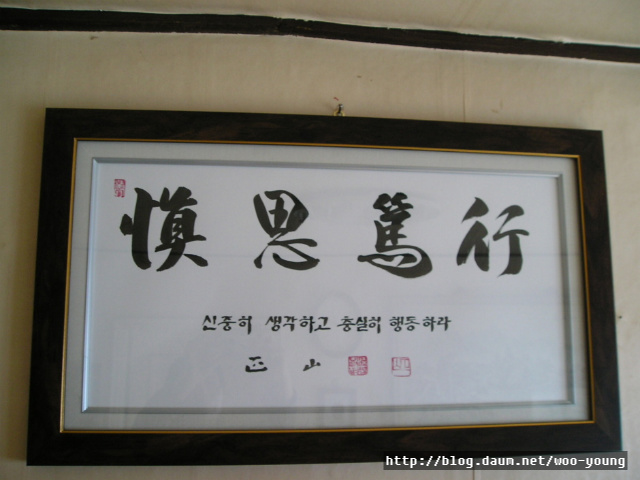 慎思篤行
신중히 생각하고 충실히 행동하라
正山
http://blog.daum.net/woo-young